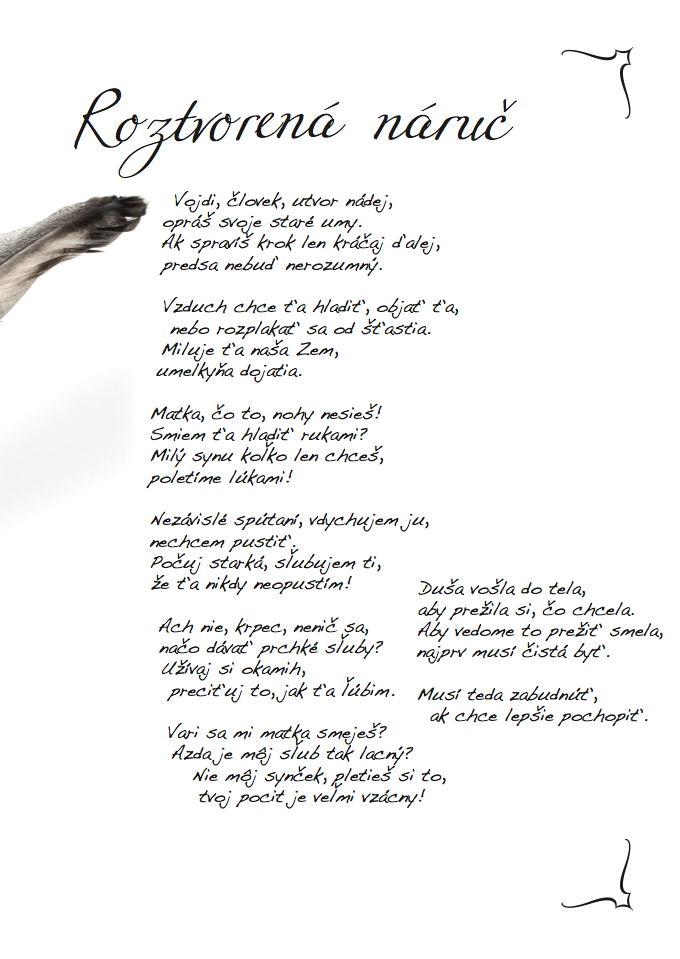 Roztvorená náruč
Vojdi, človek, utvor nádej,
opráš svoje staré umy.
Ak spravíš krok len kráčaj ďalej,
predsa nebuď nerozumný.
Vzduch chce ťa hladiť, objať ťa,
nebo rozplakať sa od šťastia.
Miluje ťa naša Zem,
umelkyňa dojatia.
Matka, čo to, nohy nesieš!
Smiem ťa hladiť rukami?
Milý synu koľko len chceš,
poletíme lúkami!
Nezávislé spútaní, vdychujem ju,
nechcem pustiť.
Počuj starká, sľubujem ti,
že ťa nikdy neopustím!
Ach nie, krpec, nenič sa,
načo dávať prchké sľuby?
Užívaj si okamih,
preciťuj to, jak ťa ľúbim.
Vari sa mi matka smeješ?
Azda je môj sľub tak lacný?
Nie môj synček, pletieš si to,
tvoj pocit je veľmi vzácny!
Duša vošla do tela,
aby prežila si, čo chcela.
Aby vedome to prežiť smela,
najprv musí čistá byť.
Musí teda zabudnúť,
ak chce lepšie pochopiť.